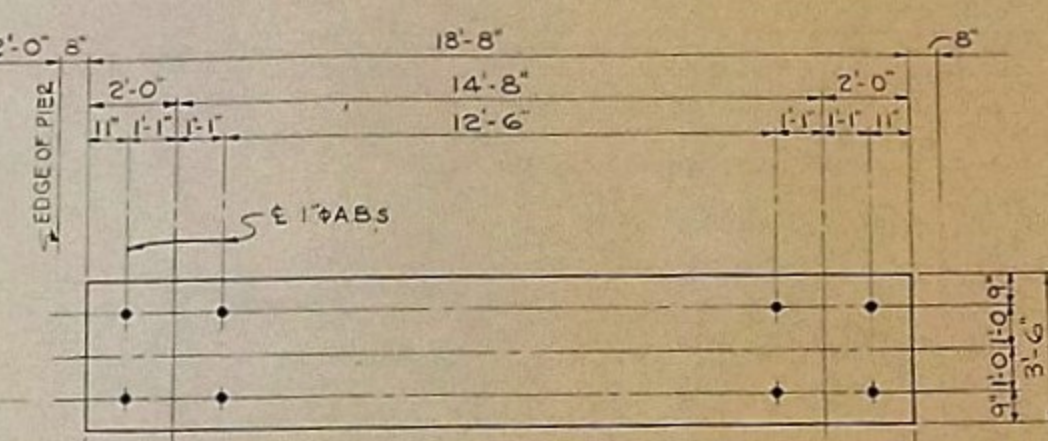 2'-0" 8" 18'-8" 8"
2'-0" 14'-8" 2'-0"
11" 1'-1" 1'-1" 12'-6" 1'-1" 1'-1" 11"
EDGE OF PIER
℄ 1"φ A.B.S
9" 1'-0 1'-0 9"
3'-6"